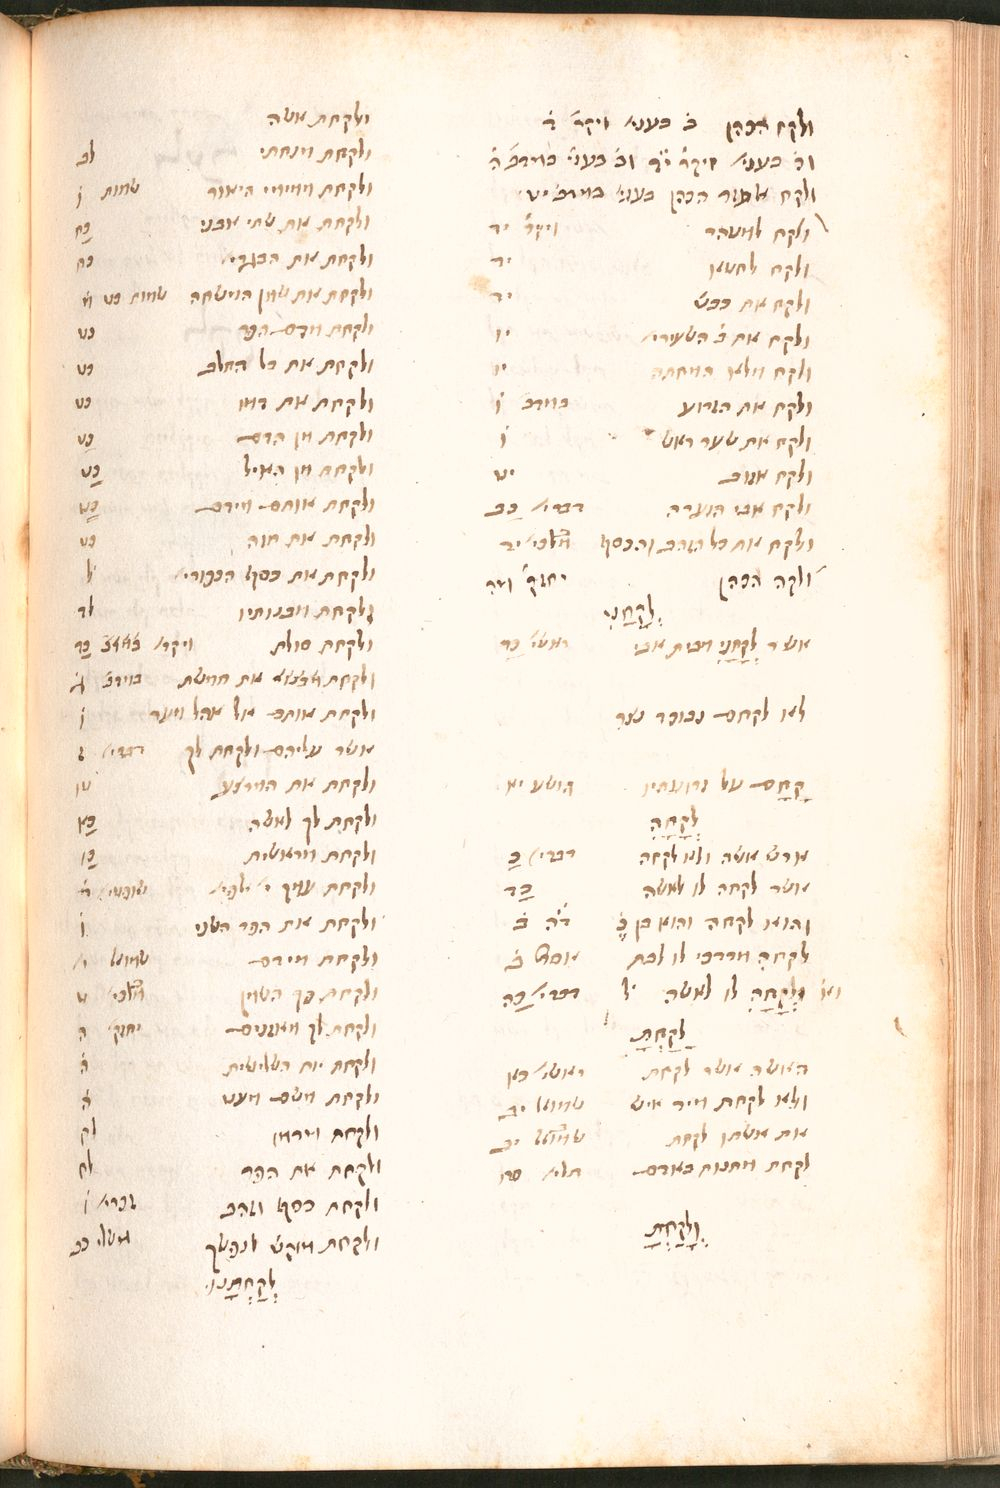 ולקח הכהן ב׳ בעני׳ ויקר׳ ד׳
וב׳ בעני׳ ויקר׳ י״ד וב׳ בעני׳ במדב׳ ה׳
ולקח אלעזר הכהן בעני׳ במדב׳ יט
ולקח למטהר ויקר׳ יד
ולקח לחטא יד
ולקח את כבש יד
ולקח את ב׳ השעירי׳ יו
ולקח מלא המחתה יו
ולקח את הזרוע במדב׳ ו
ולקח את שער ראש ו
ולקח אזוב יט
ולקח אבי הנערה דברי׳ כב
ולקח את כל הזהב והכסף מלכי׳ יד
ולקח הכהן יחזק׳ מה
לְקָחַנִי
אשר לְקָחַנִי מבית אבי ראשי׳ כד
לא לקחם נבוכד נצר
קָחָם על זרועתיו הושע יא
לְקָחָהּ
ארש אשה ולא לקחה דברי׳ כ
אשר לקחה לו לאשה כד
והוא לקחה והוא בן ס׳ ד״ה ב׳
לקחה מרדכי לו לבת אסת׳ ב׳
וּלְקָחָהּ לו לאשה דברי׳ כה
לָקַחְתָּ
האשה אשר לקחת ראשי׳ כ
ולא לקחת מיד איש שמואל יב
את אשתו לקחת שמואל יב
לקחת מתנות באדם תלי׳ סח
וְלָקַחְתָּ
ולקחת אשה
ולקחת מנחתי לג
ולקחת ממימי היאור שמות ד
ולקחת את שתי אבני כח
ולקחת את הבגדי׳ כח
ולקחת את שמן המשחה שמות כט
ולקחת מדם הפר כט
ולקחת את כל החלב כט
ולקחת את דמו כט
ולקחת מן הדם כט
ולקחת מן האיל כט
ולקחת אותם מידם כט
ולקחת את חזה כט
ולקחת את כסף הכפורי׳ ל
ולקחת סולת ויקר׳ כד
ולקחת את חמשת במדב׳ ג
אשר עליהם ולקחת לך דברי׳ ז
ולקחת את המרצע טו
ולקחת לך לאשה כא
ולקחת מראשית כו
ולקחת עמך שופטי׳ ד
ולקחת את הפר השני ו
ולקחת מידם שמואל
ולקחת פך השמן מלכי׳ ט
ולקחת לך מאזנים יחזק׳ ה
ולקחת את השלישית ה
ולקחת משם מעט ה
ולקחת מדמו
ולקחת את הפר
ולקחת כסף וזהב זכרי׳ ו
ולקחת מוקש לנפשך משלי כב
לְקַחְתָּנוּ